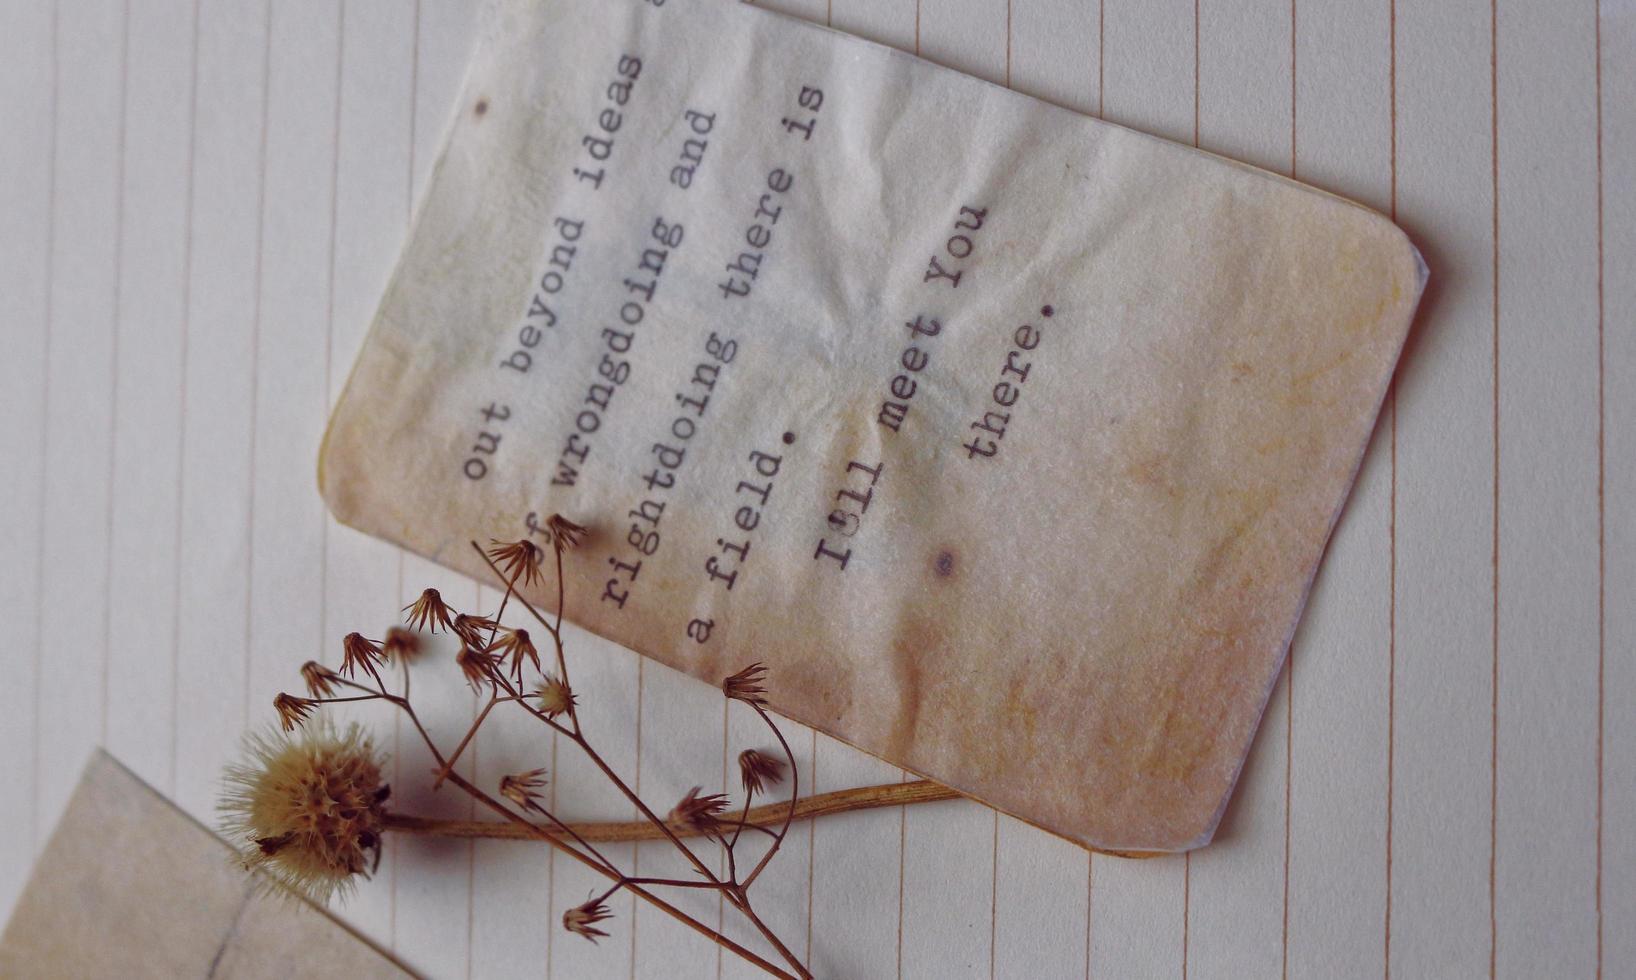 out beyond ideas
of wrongdoing and
rightdoing there is
a field.
I'll meet You
there.